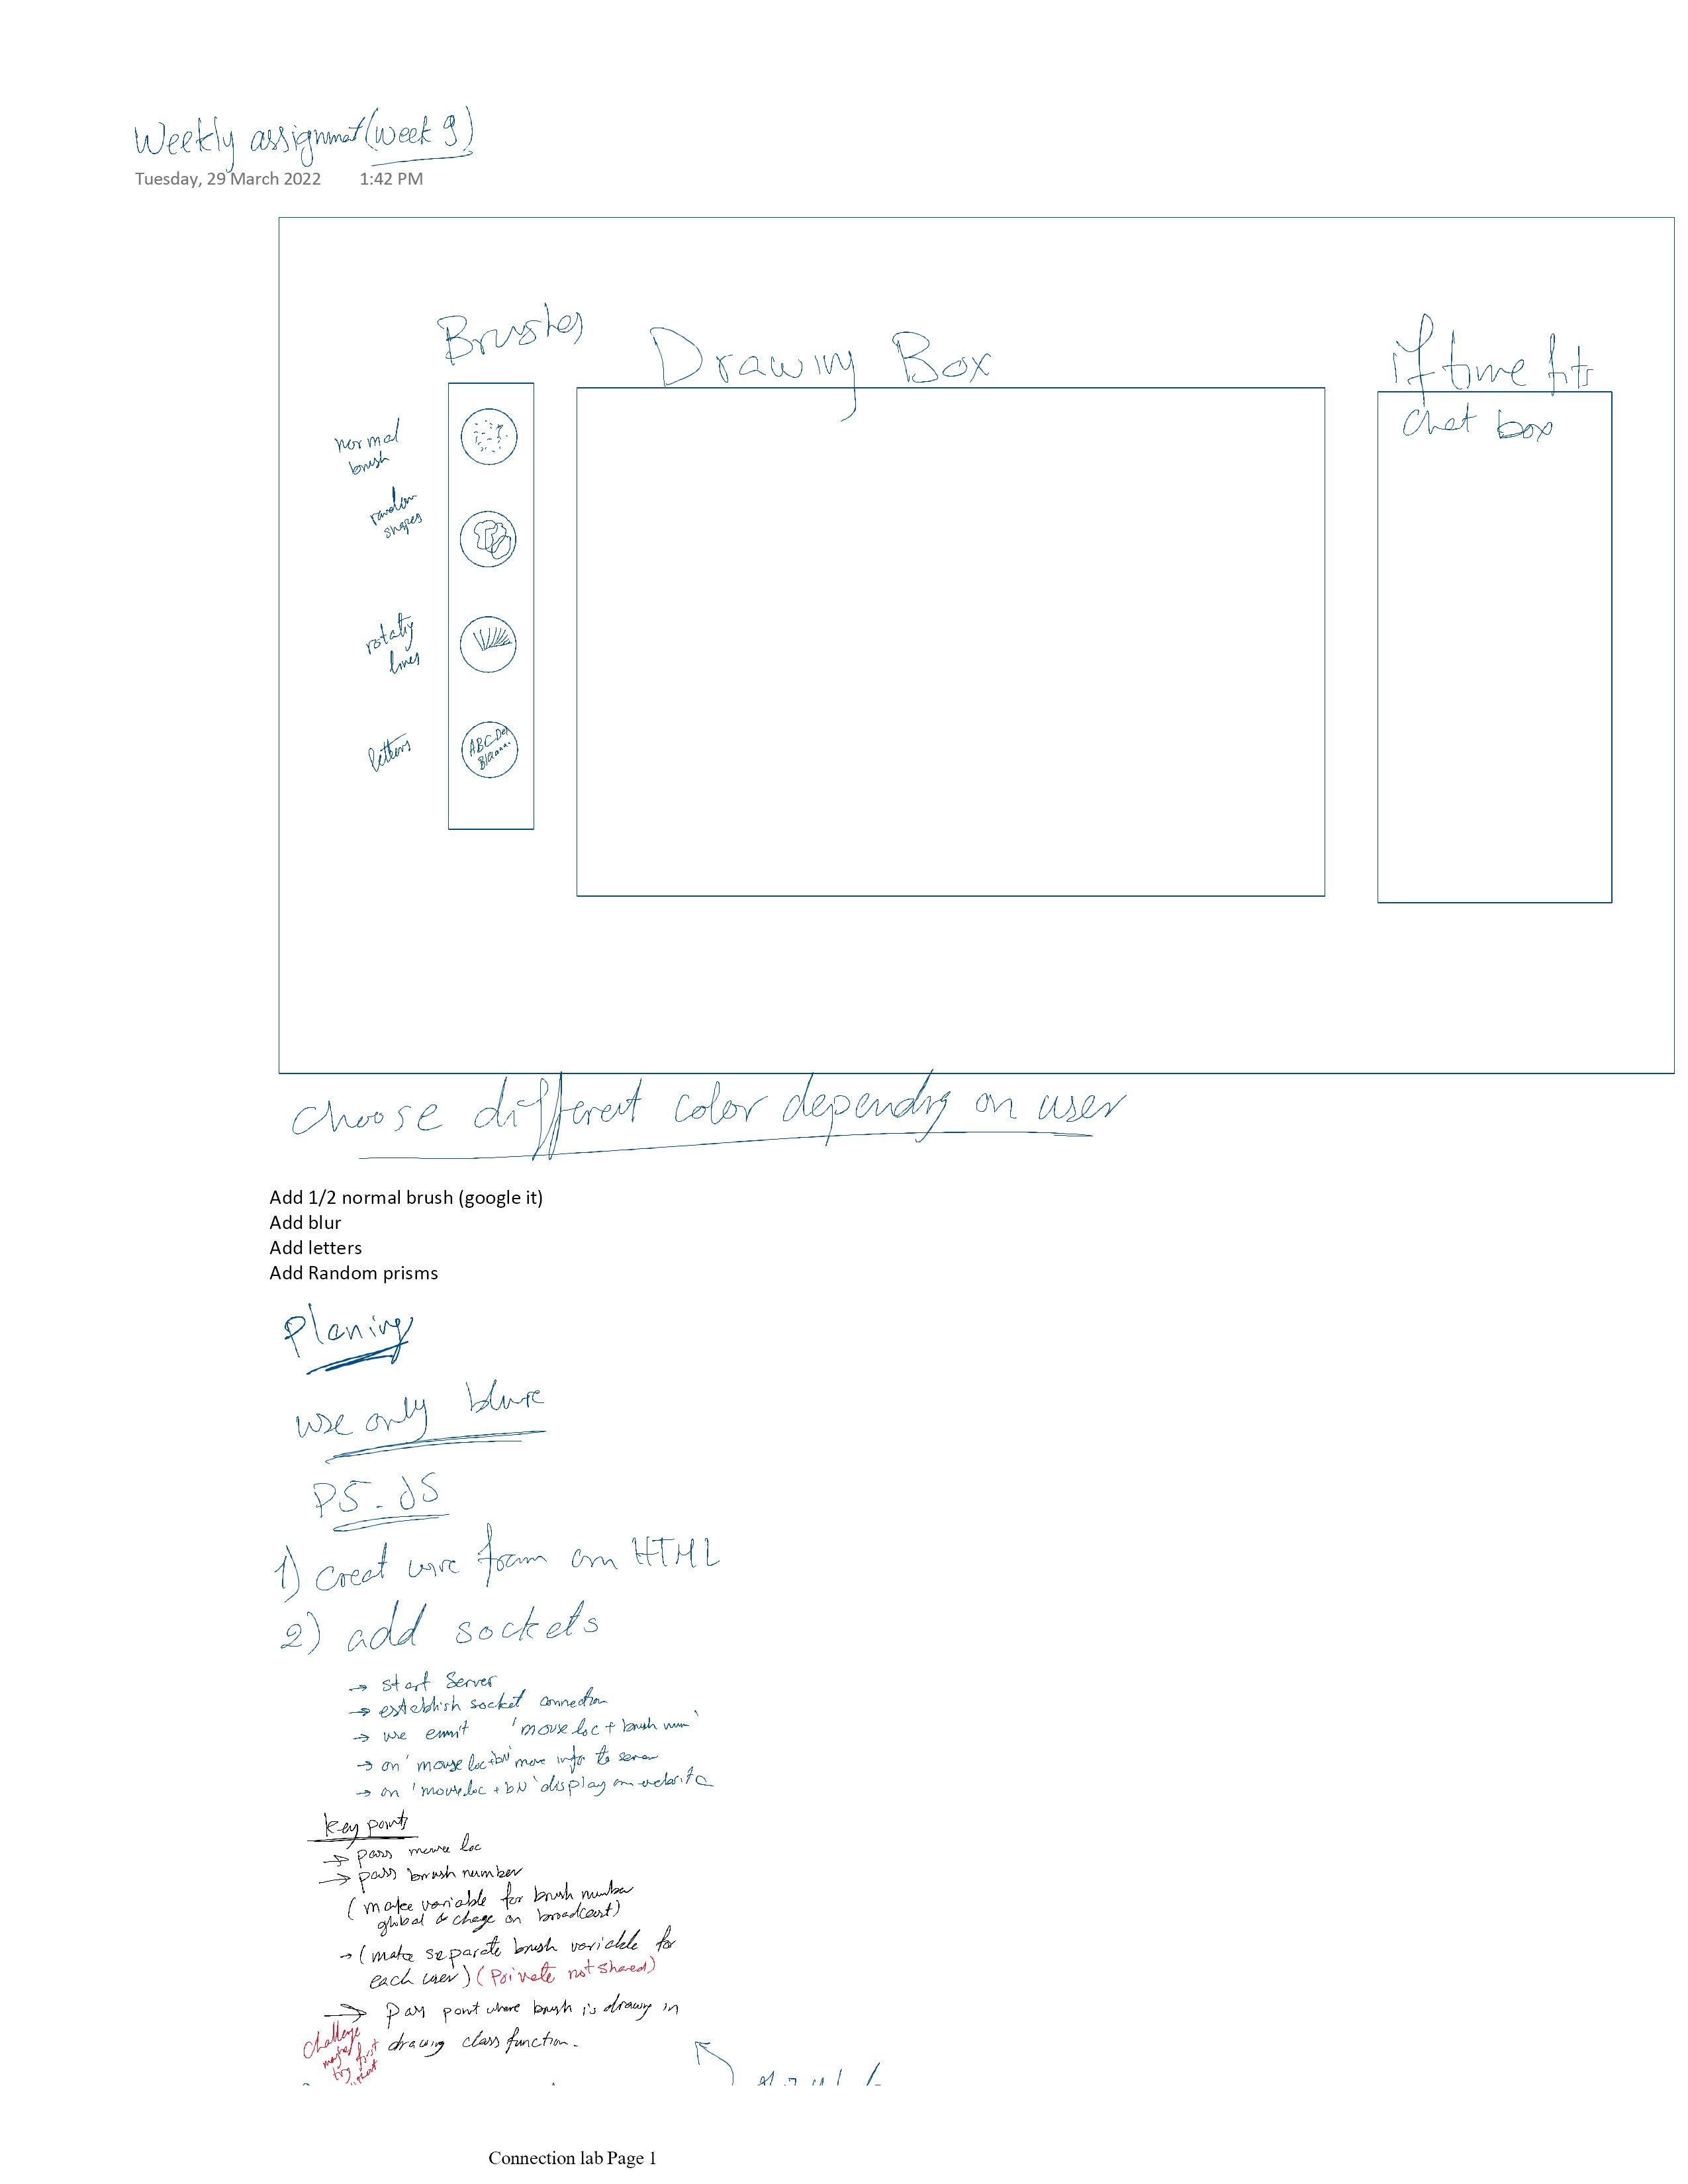 Weekly assignmat (week 9)
Tuesday, 29 March 2022 1:42 PM
Brushes
Drawing Box
if time fits
chat box
normal
brush
random
shapes
rotatiy
lines
letters
ABCDef
choose different color depending on user
Add 1/2 normal brush (google it)
Add blur
Add letters
Add Random prisms
Planing
use only blure
P5.JS
1) creat wire fram on HTML
2) add sockets
→ start Server
→ establish socket connection
→ we emit 'mouse loc + brush num'
→ on 'mouse loc+bN' move info to server
→ on 'mouse loc + bN' display on
key points
→ pass mouse loc
→ pass brush number
(make variable for brush number
global & chage on broadcast)
→ (make separate brush variable for
each user) (Private not shared)
→ pass point where brush is drawing in
drawing class function.
challenge
maybe
try first
Connection lab Page 1